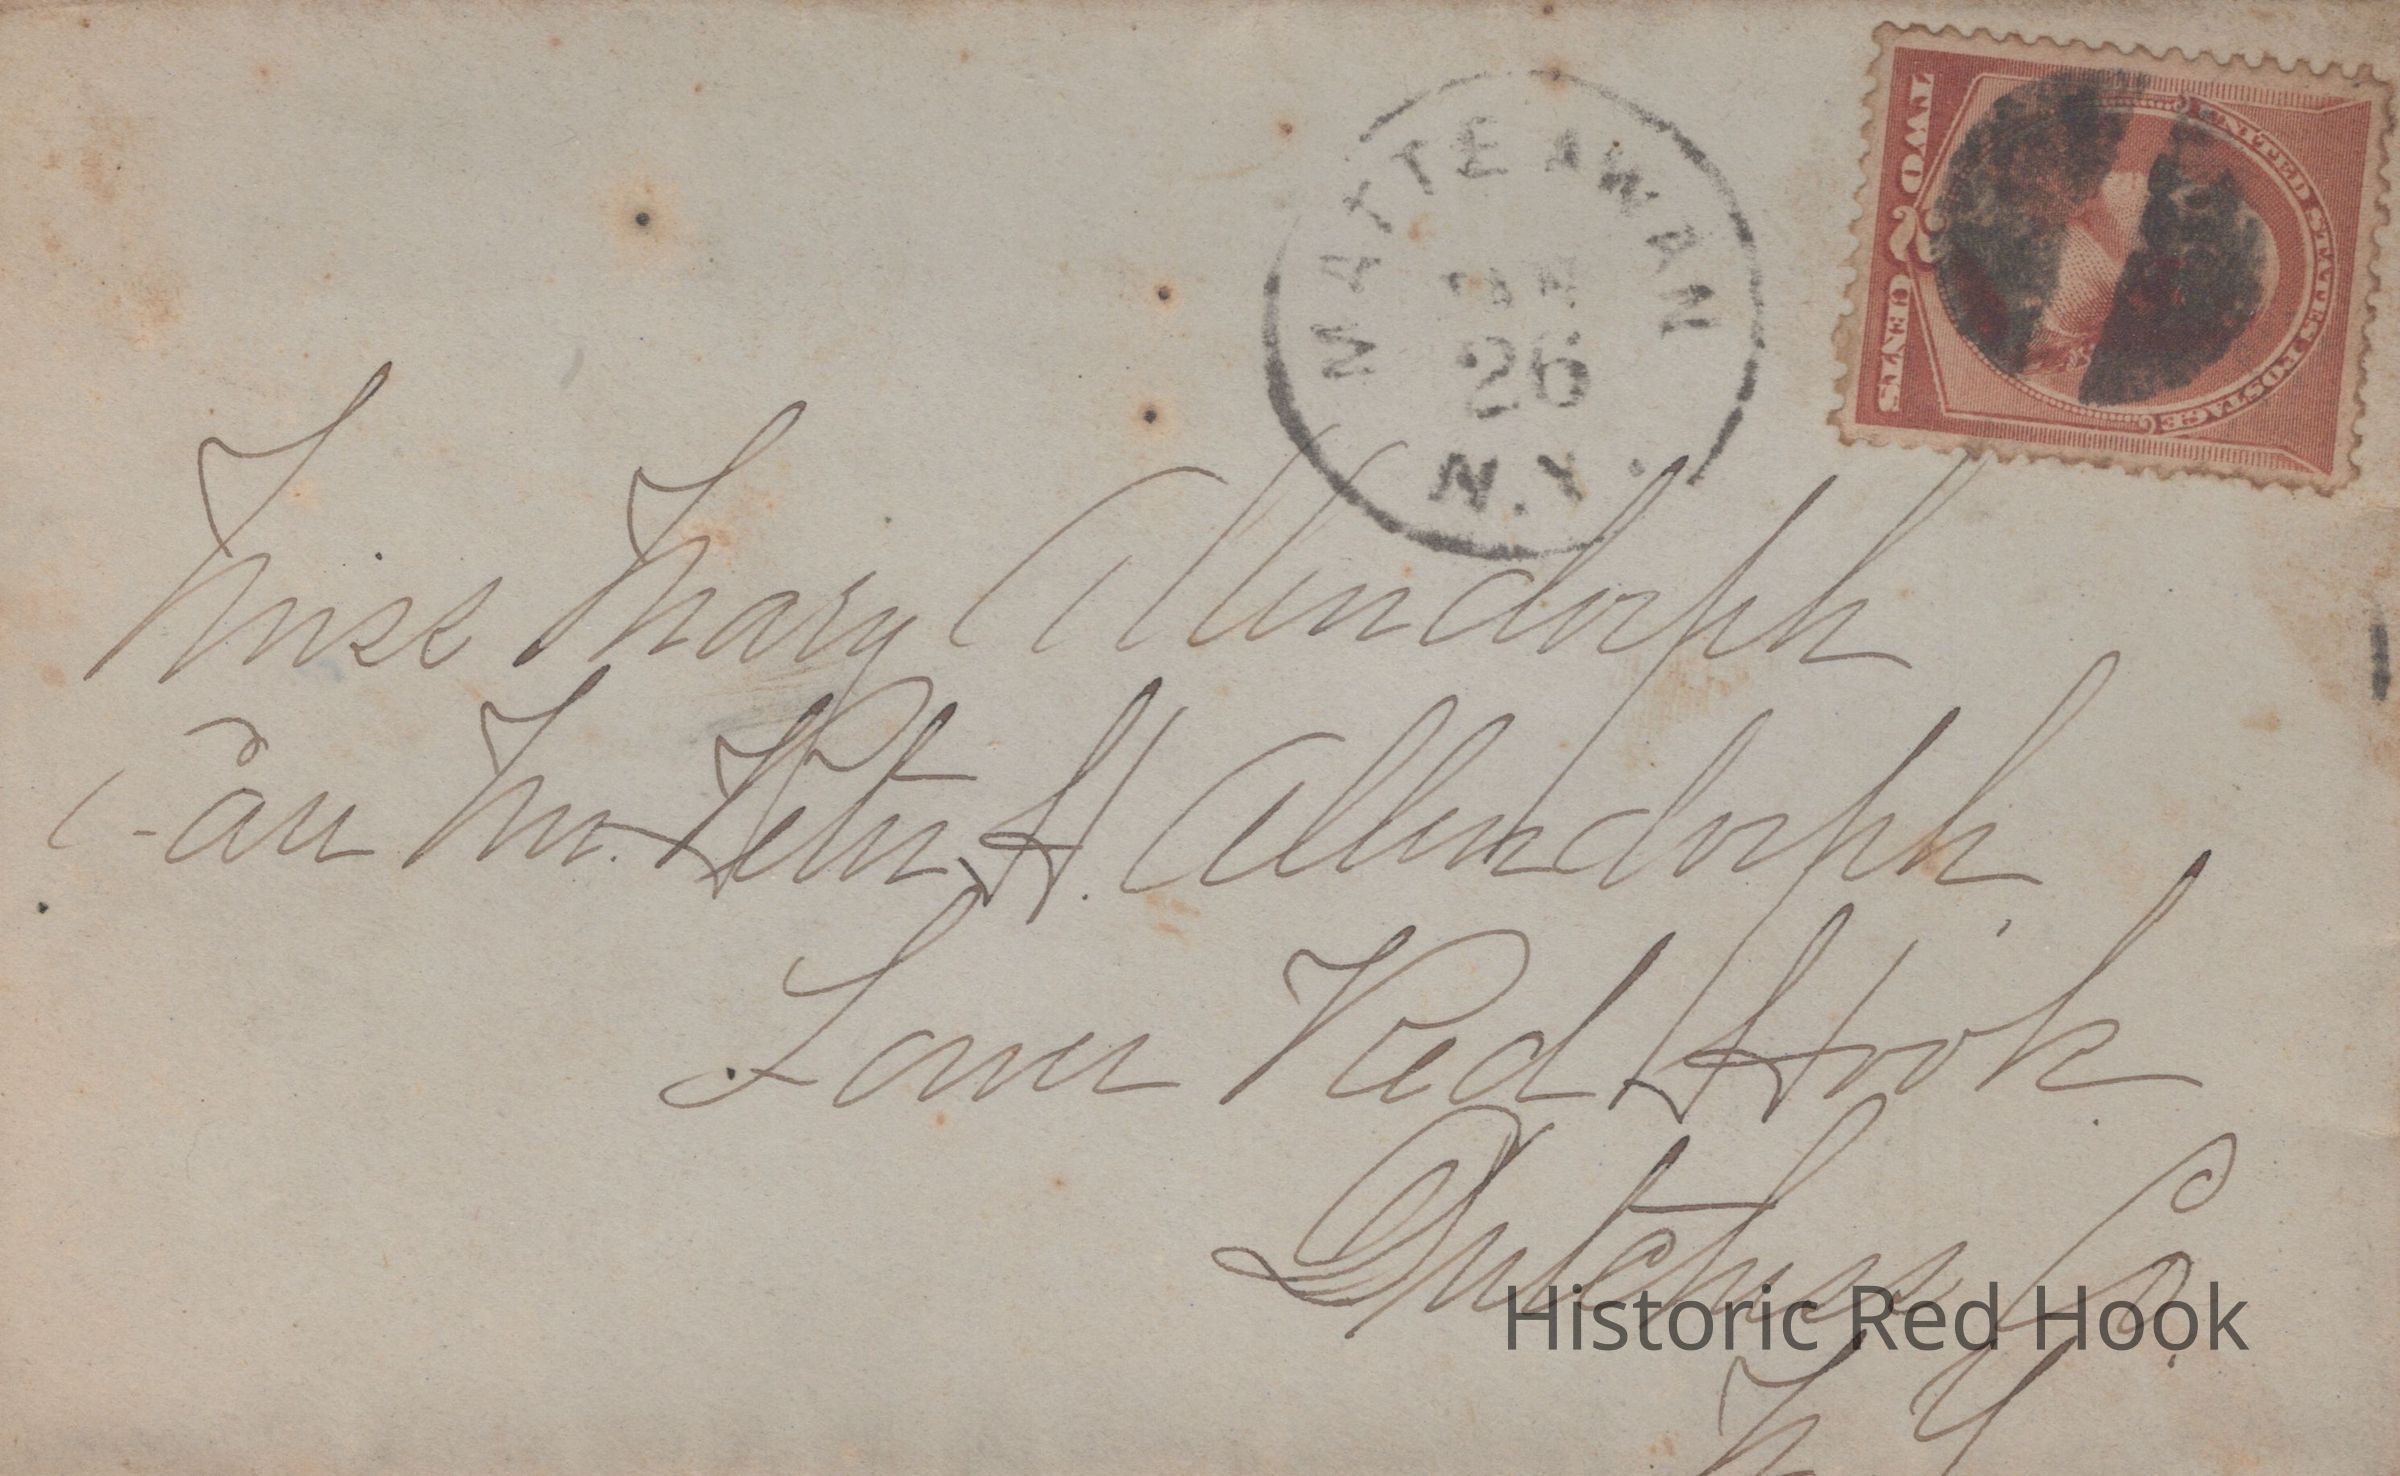 MATTEAWAN
26
N.Y.
UNITED STATES POSTAGE
TWO 2 CENTS
Miss Mary Allendorph
Care Mr. Peter H. Allendorph,
Lower Red Hook
Dutchess Co.
N Y
Historic Red Hook